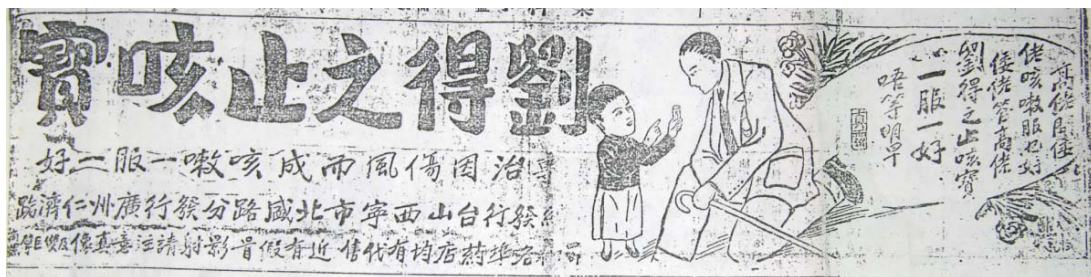 劉得之止咳寶
專治因傷風而成咳嗽一服一好
發行台山西寧市北盛路分發行廣州仁濟路
各埠葯店均有代售近有假冒影射請注意真像
高佬
佬咳嗽服也好
倭佬管高佬
劉得之止咳寶
一服一好
唔等明早